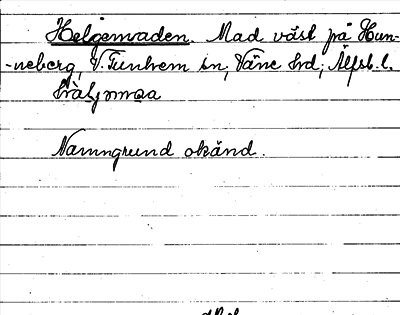 Helgemaden. Mad väst på Hun-
-neberg, V. Tunhem sn, Väne hd, Älfsb. l.
Namngrund okänd.